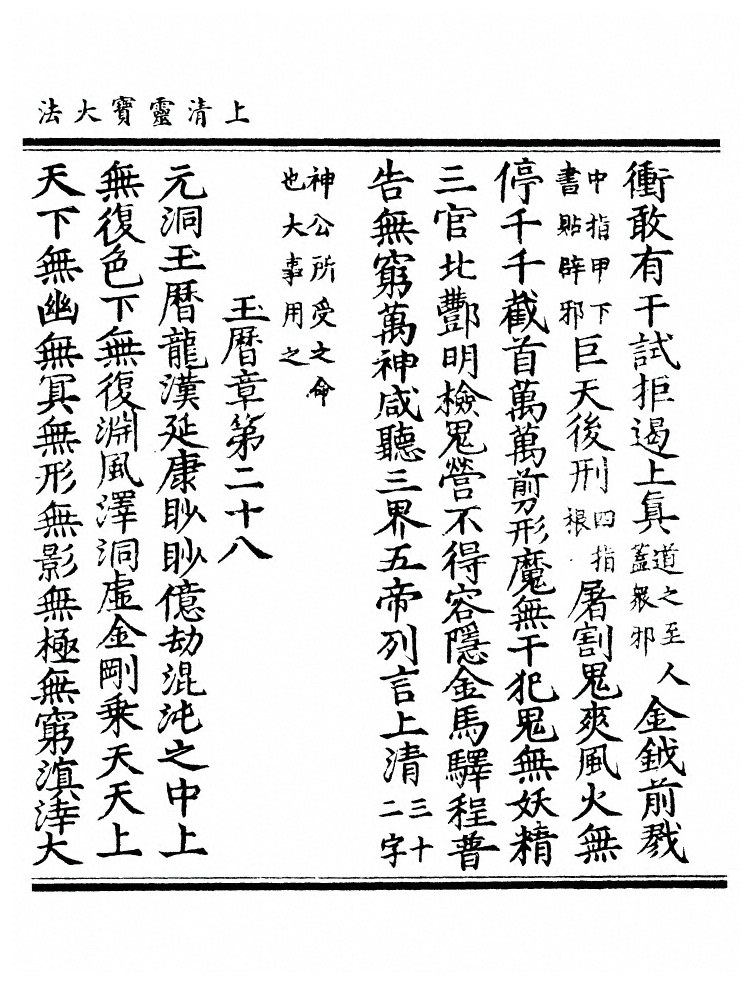 上清靈寶大法
衝敢有干試拒遏上眞道之至人蓋衆邪金鉞前戮
中指甲下書貼辟邪巨天後刑四指根屠割鬼爽風火無
停千千截首萬萬剪形魔無干犯鬼無妖精
三官北酆明檢鬼營不得容隱金馬驛程普
告無窮萬神咸聽三界五帝列言上清三十二字
神公所受之命
也大事用之
玉暦章第二十八
元洞玉暦龍漢延康眇眇億劫混沌之中上
無復色下無復淵風澤洞虛金剛乘天天上
天下無幽無冥無形無影無極無窮滇涬大